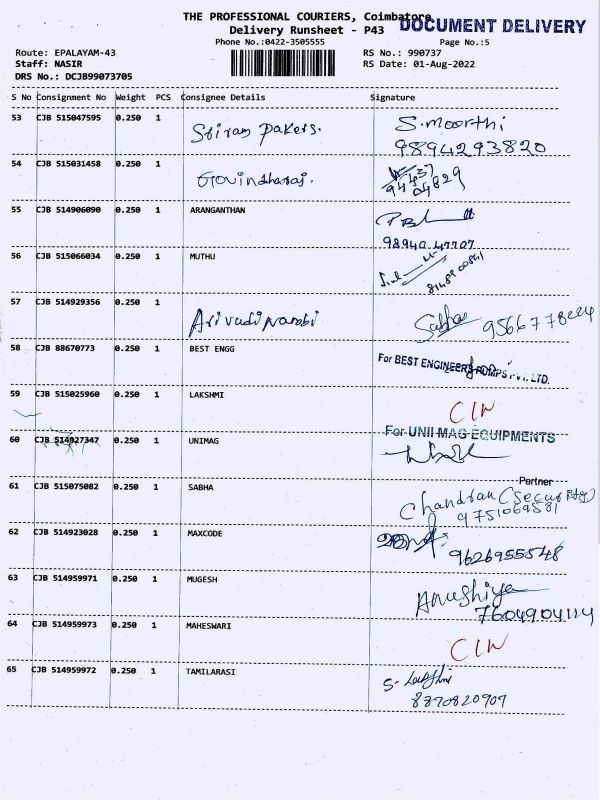 THE PROFESSIONAL COURIERS, Coimbatore
DOCUMENT DELIVERY
Delivery Runsheet - P43
Phone No.:0422-3505555
Page No.:5
Route: EPALAYAM-43
RS No.: 990737
Staff: NASIR
RS Date: 01-Aug-2022
DRS No.: DCJB99073705
S No Consignment No Weight PCS Consignee Details Signature
53 CJB 515047595 0.250 1 Sriram Pakers. S.moorthi
9894293820
54 CJB 515031458 0.250 1 Govindharaj.
94437
04829
55 CJB 514906090 0.250 1 ARANGANTHAN
98940 47707
56 CJB 515066034 0.250 1 MUTHU
57 CJB 514929356 0.250 1 Arivudinambi
58 CJB 88670773 0.250 1 BEST ENGG
For BEST ENGINEERS PUMPS PVT. LTD.
59 CJB 515025960 0.250 1 LAKSHMI
CIN
For UNII MAG EQUIPMENTS
60 CJB 514827347 0.250 1 UNIMAG
Partner
61 CJB 515075082 0.250 1 SABHA Chandran (Security)
9751069581
62 CJB 514923028 0.250 1 MAXCODE
9626955548
63 CJB 514959971 0.250 1 MUGESH Anushiya
7604904114
64 CJB 514959973 0.250 1 MAHESWARI
CIN
65 CJB 514959972 0.250 1 TAMILARASI
8870820907